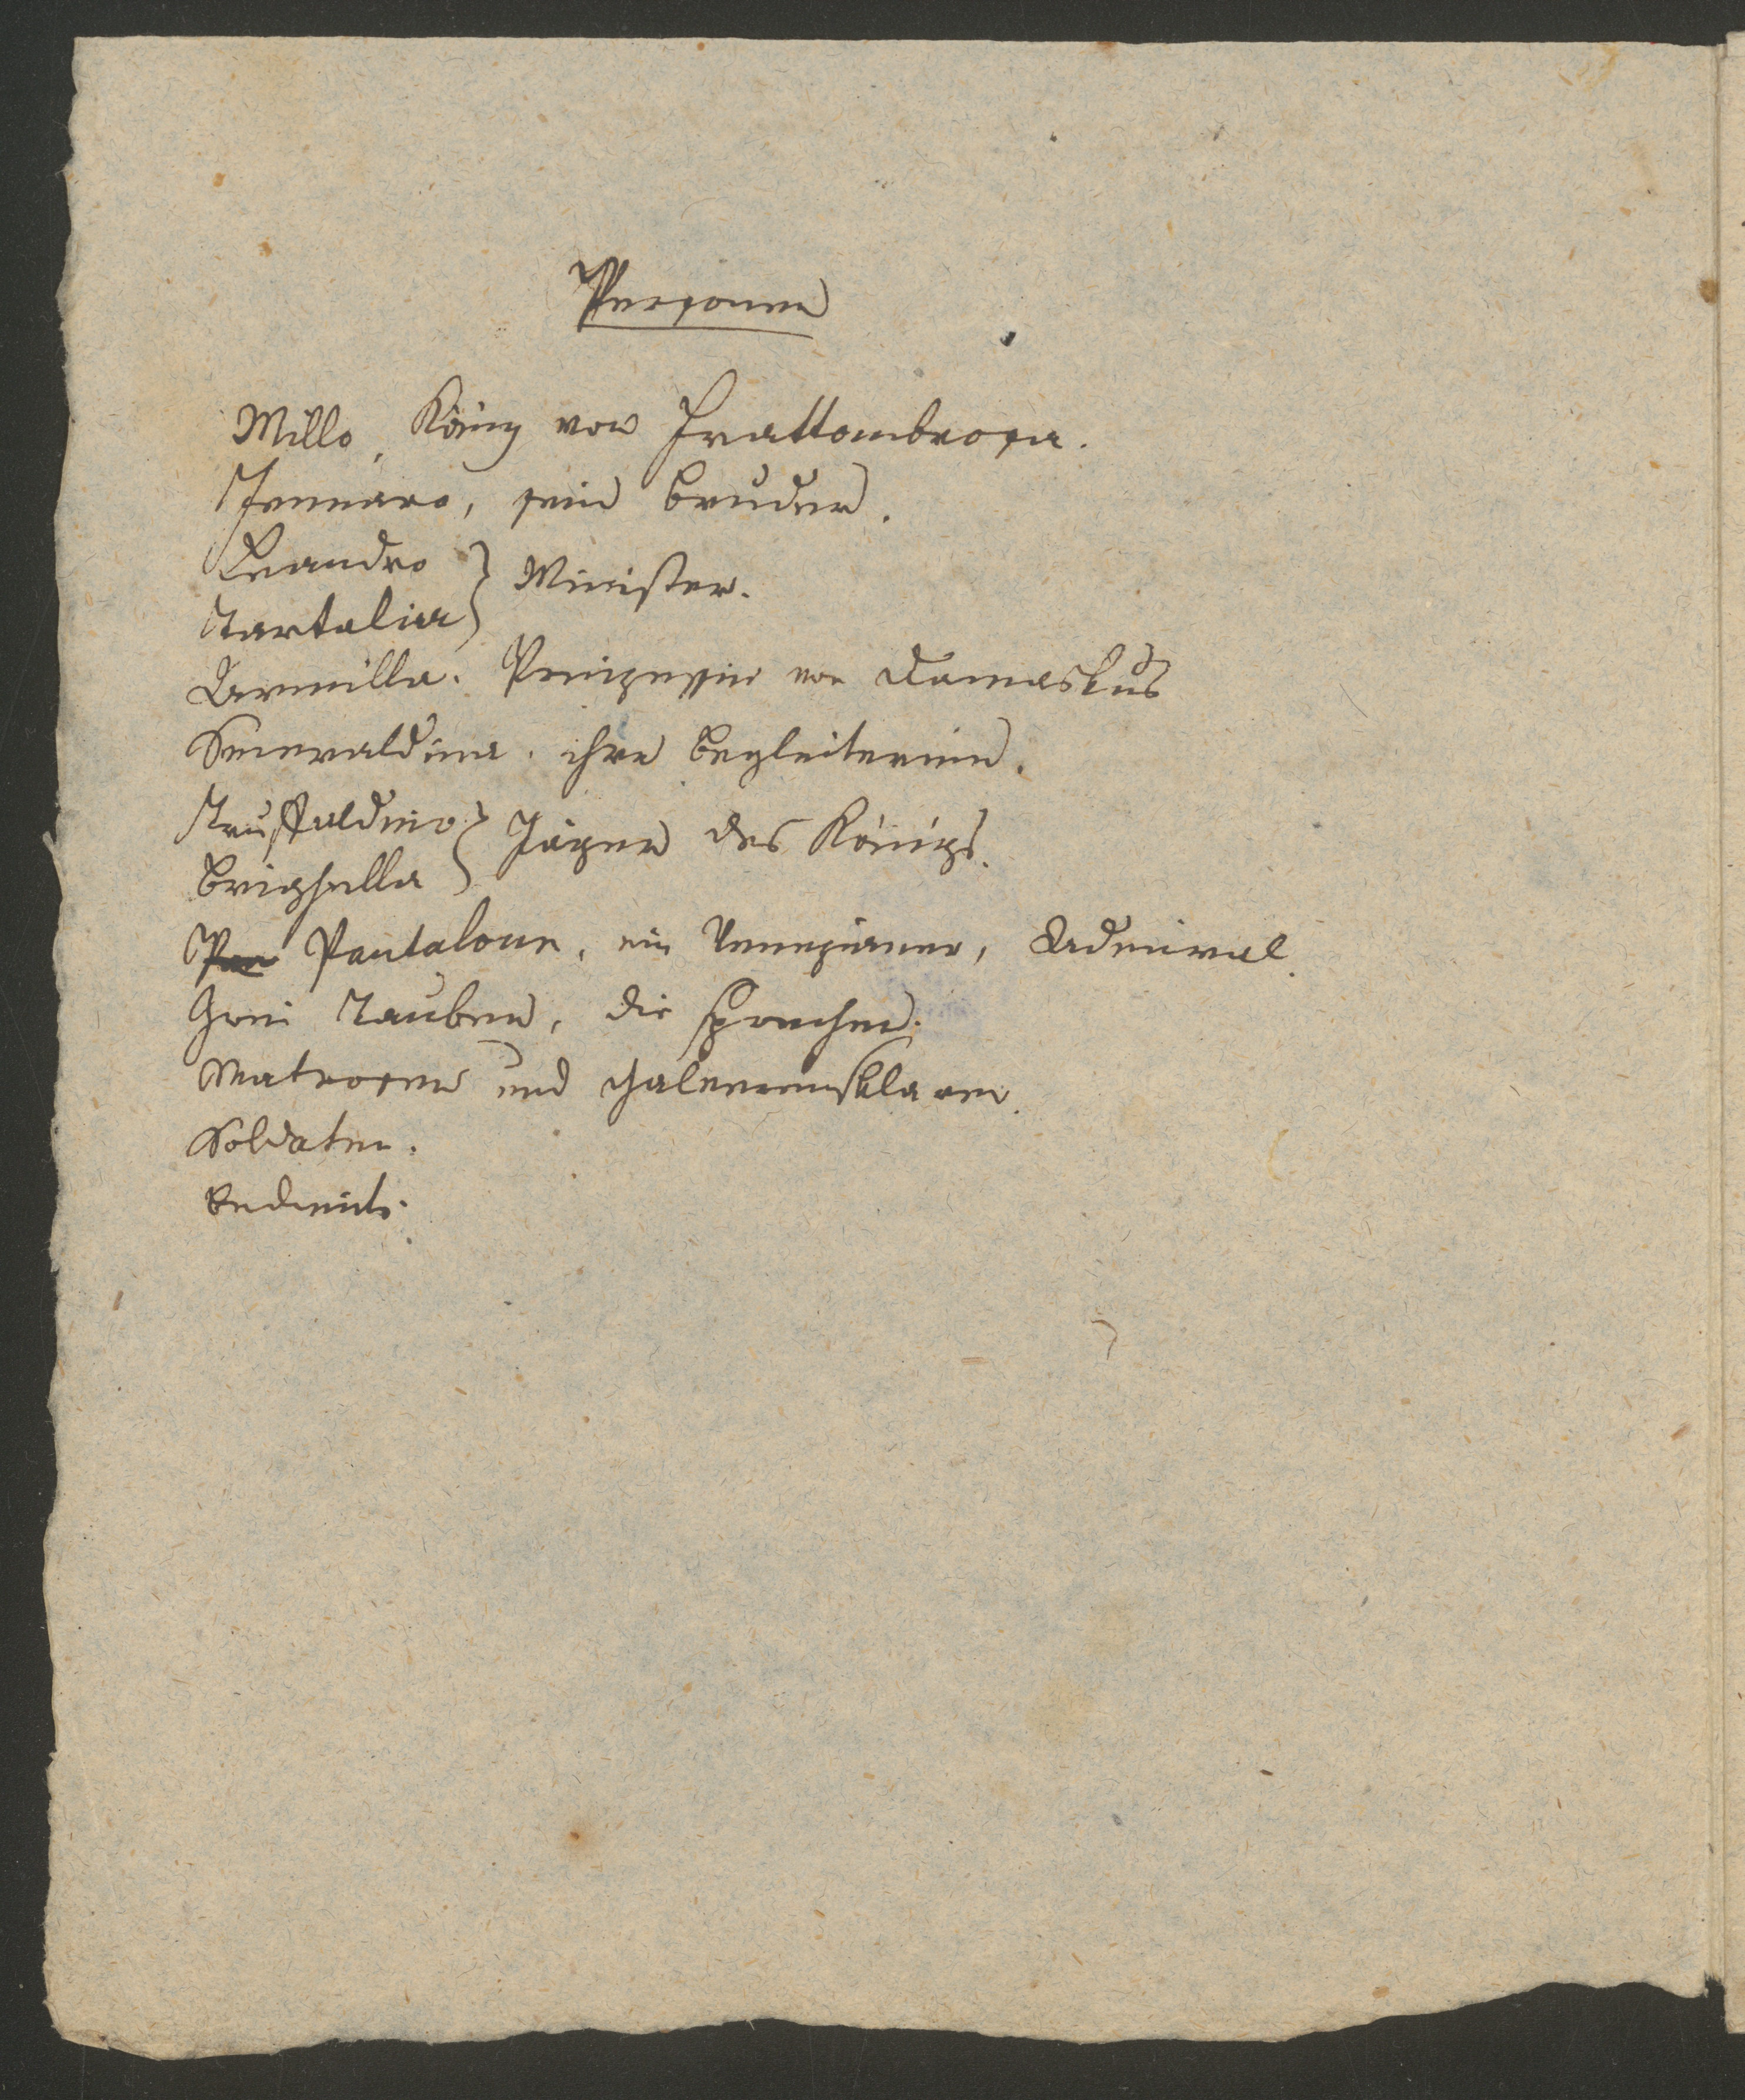 Personen
Millo, König von Frattombrosa.
Jennaro, sein Bruder.
Leandro
Tartalia } Minister.
Armilla. Prinzessin von Damaskus
Smeraldina. ihre Begleiterinn.
Truffaldino
Brighella } Jäger des Königs.
Pan Pantalone, ein Venezianer, Admiral.
Zwei Tauben, die sprechen.
Matrosen und Galeerensklaven.
Soldaten.